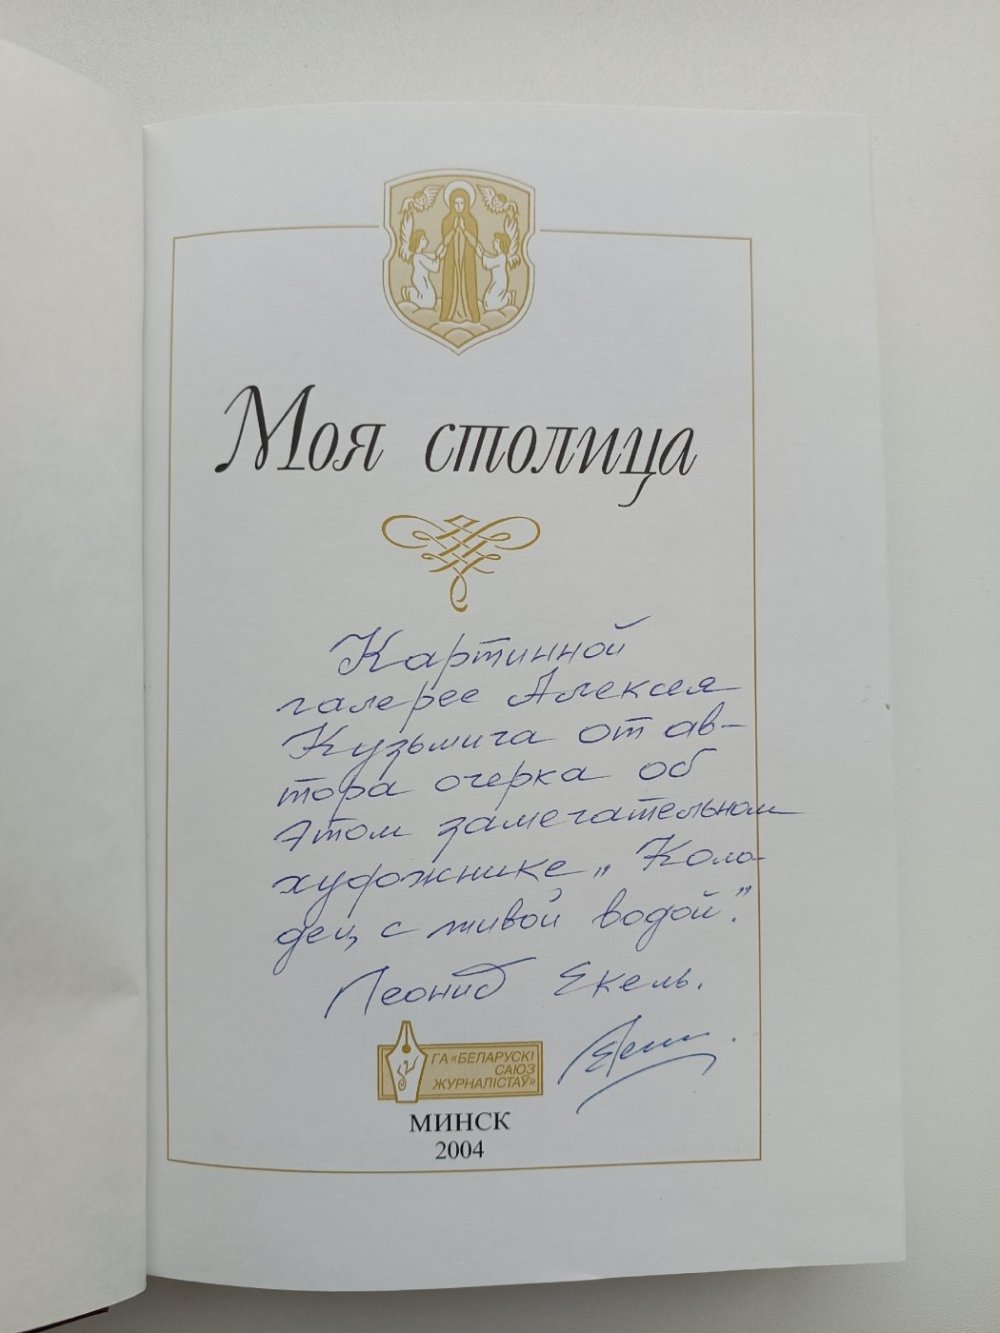 Моя столица
Картинной
галерее Алексея
Кузьмича от ав-
тора очерка об
этом замечательном
художнике „Коло-
дец с живой водой".
Леонид Екель.
ГА «БЕЛАРУСКІ
САЮЗ
ЖУРНАЛІСТАЎ»
МИНСК
2004